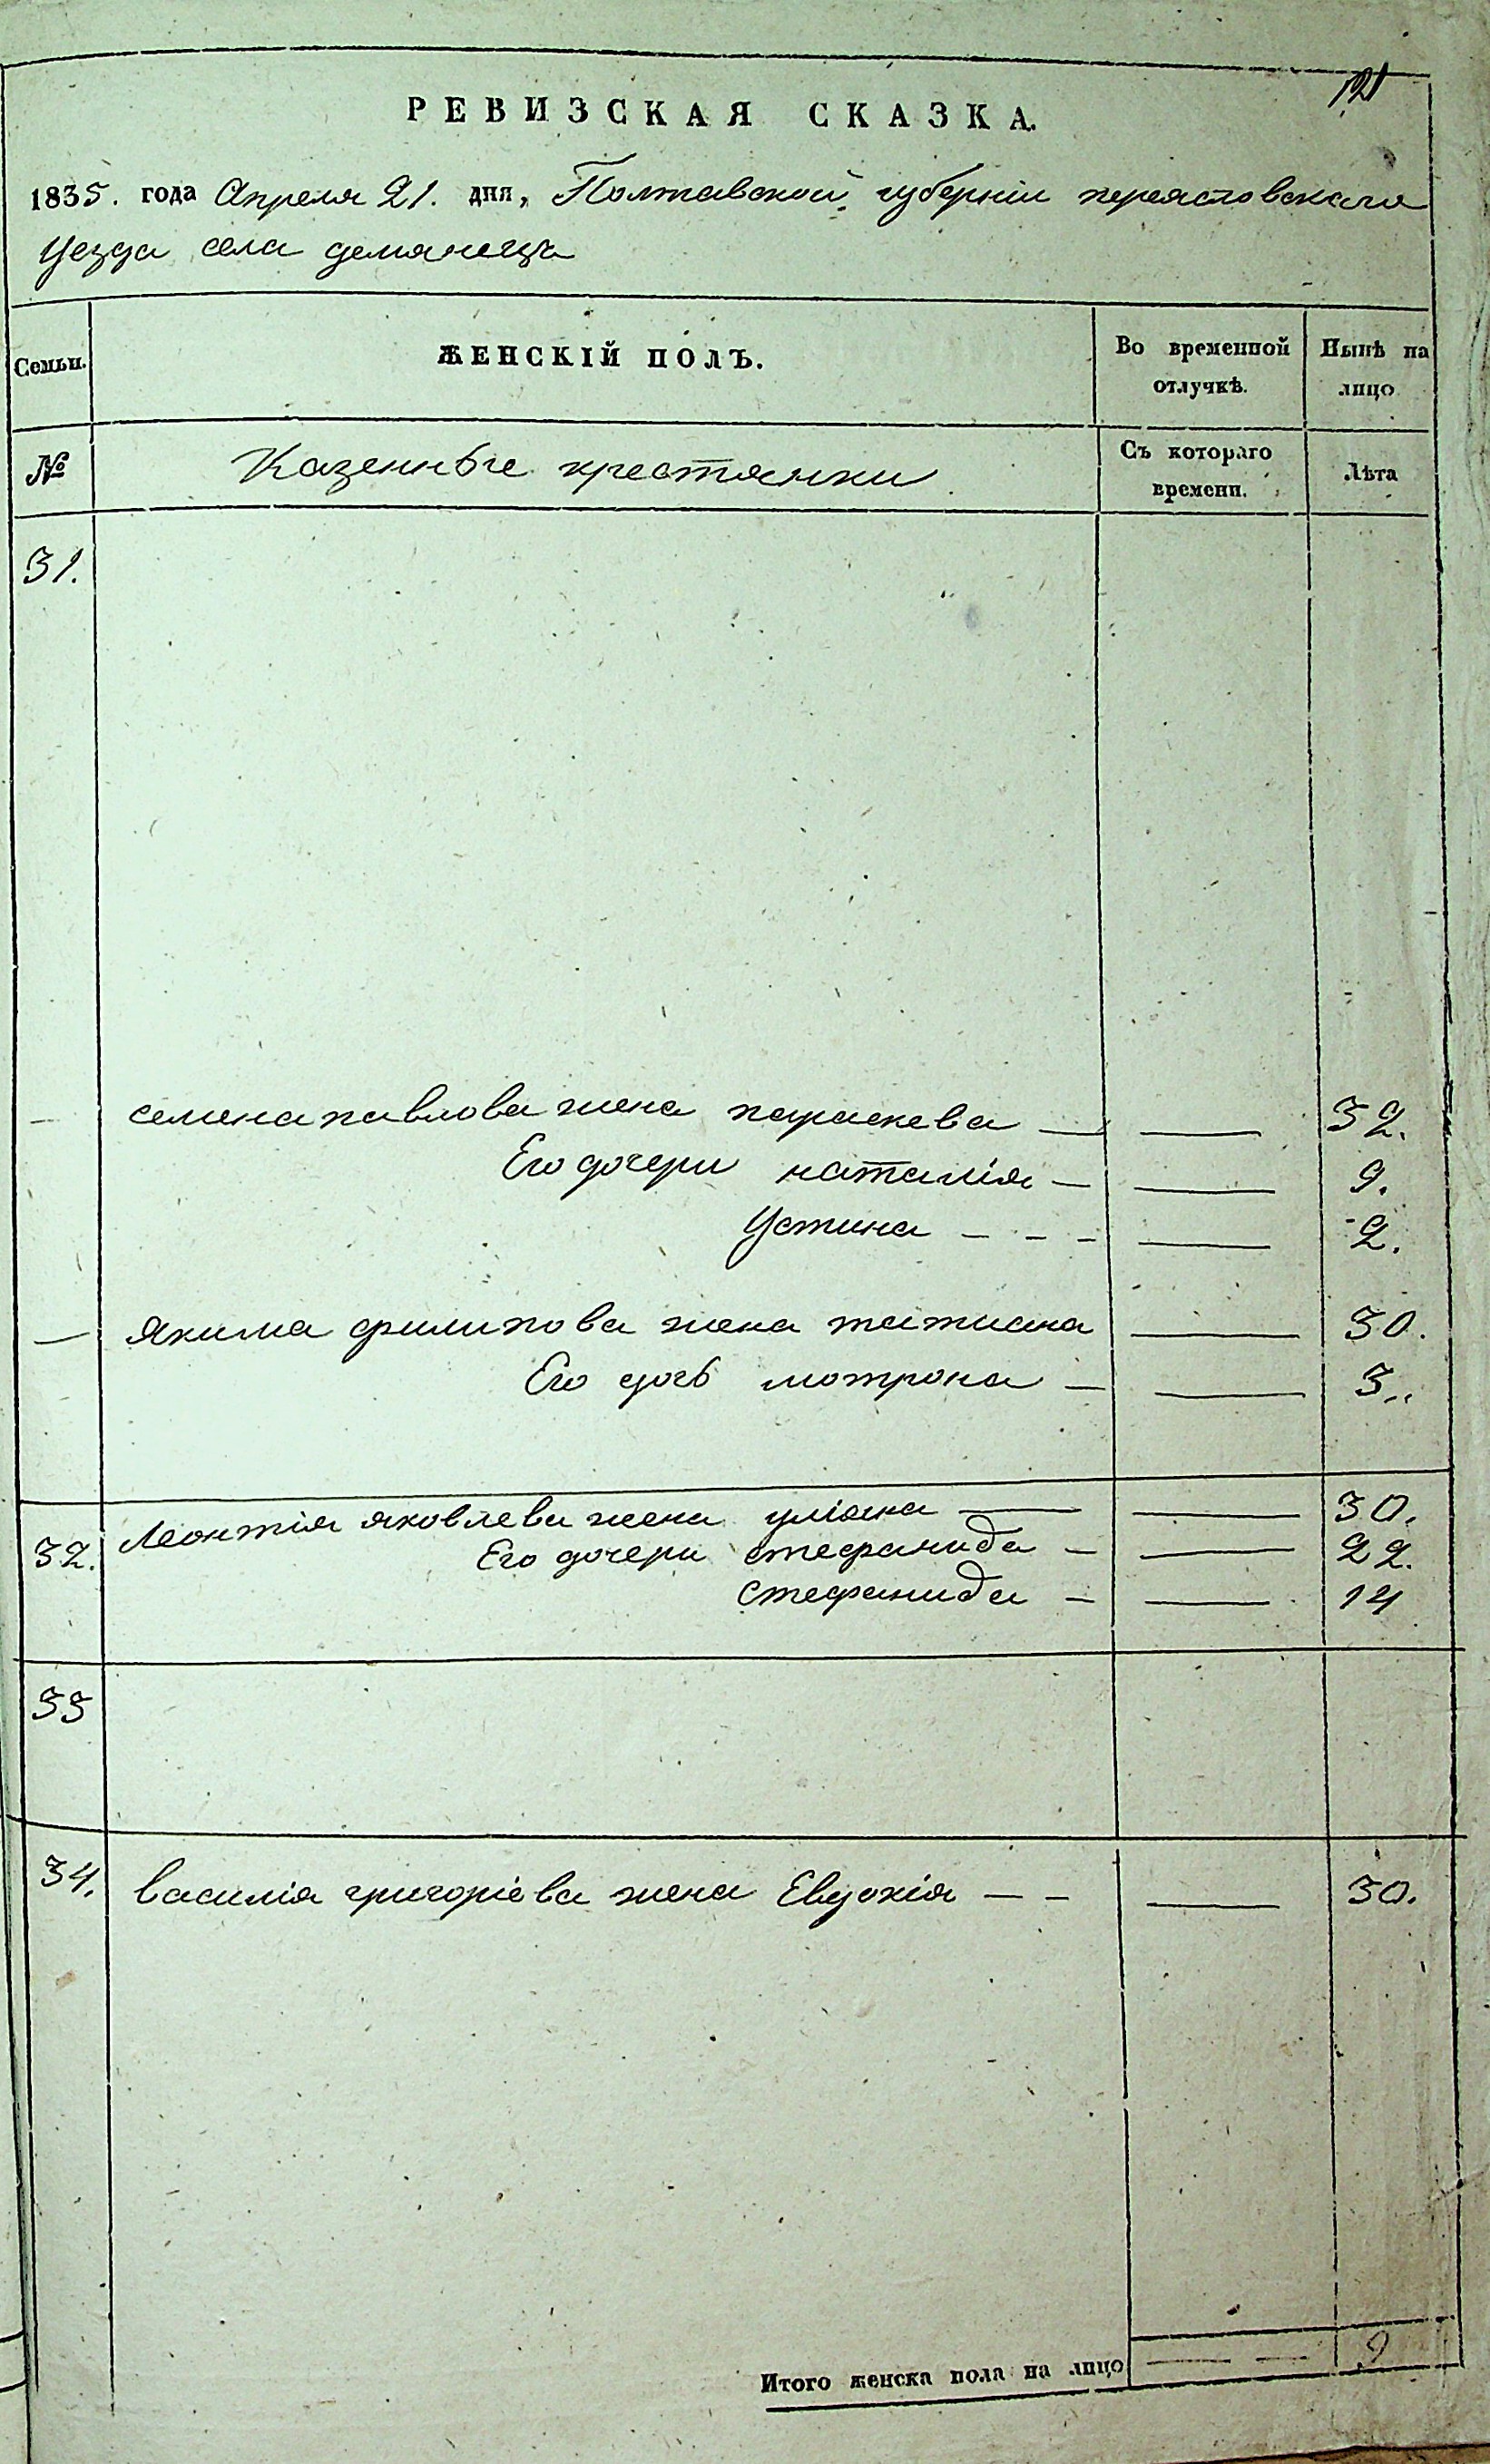 121
РЕВИЗСКАЯ СКАЗКА.
1835. года Апреля 21. дня, Полтавской губернiи переясловскаго
уезда села демянеца
Семьи. ЖЕНСКIЙ ПОЛЪ. Во временной отлучкѣ. Нынѣ на лицо
№ Казенные крестянки Съ котораго времени. Лѣта
31.
— семена павлова жена параскева — — 32.
Его дочери наталiя — — 9.
Устина - - - — 2.
— якима филипова жена татиана — 30.
Его дочь мотрона — — 3..
32. Леонтiя яковлева жена улiана — — 30.
Его дочери стефанида — — 22.
Стефанида — — 14
33
34. василiя григорiева жена Евдокiя — — — 30.
Итого женска пола на лицо — — 9